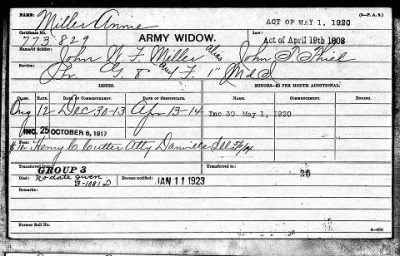 NAME: Miller Annie
ACT OF MAY 1, 1920
Certificate No. 773,829 ARMY WIDOW. Law: Act of April 19th 1908
Name of Soldier: John W. F. Miller alias John F. Thiel
Pr. G 8" F 1" Md
WIDOW. MINORS—$2 PER MONTH ADDITIONAL.
RATE. DATE OF COMMENCEMENT. DATE OF CERTIFICATE. NAME. DATE OF COMMENCEMENT.
Aug 12 Dec 30-13 Apr 13-14 Inc 30 May 1, 1920
INC. 25 OCTOBER 6, 1917
Henry C. Cutter Atty Danville Ill
Transferred from GROUP 3 Transferred to 30
Died: no date given Bureau notified: JAN 11 1923
3-1081 D
Remarks:
Former Roll No.